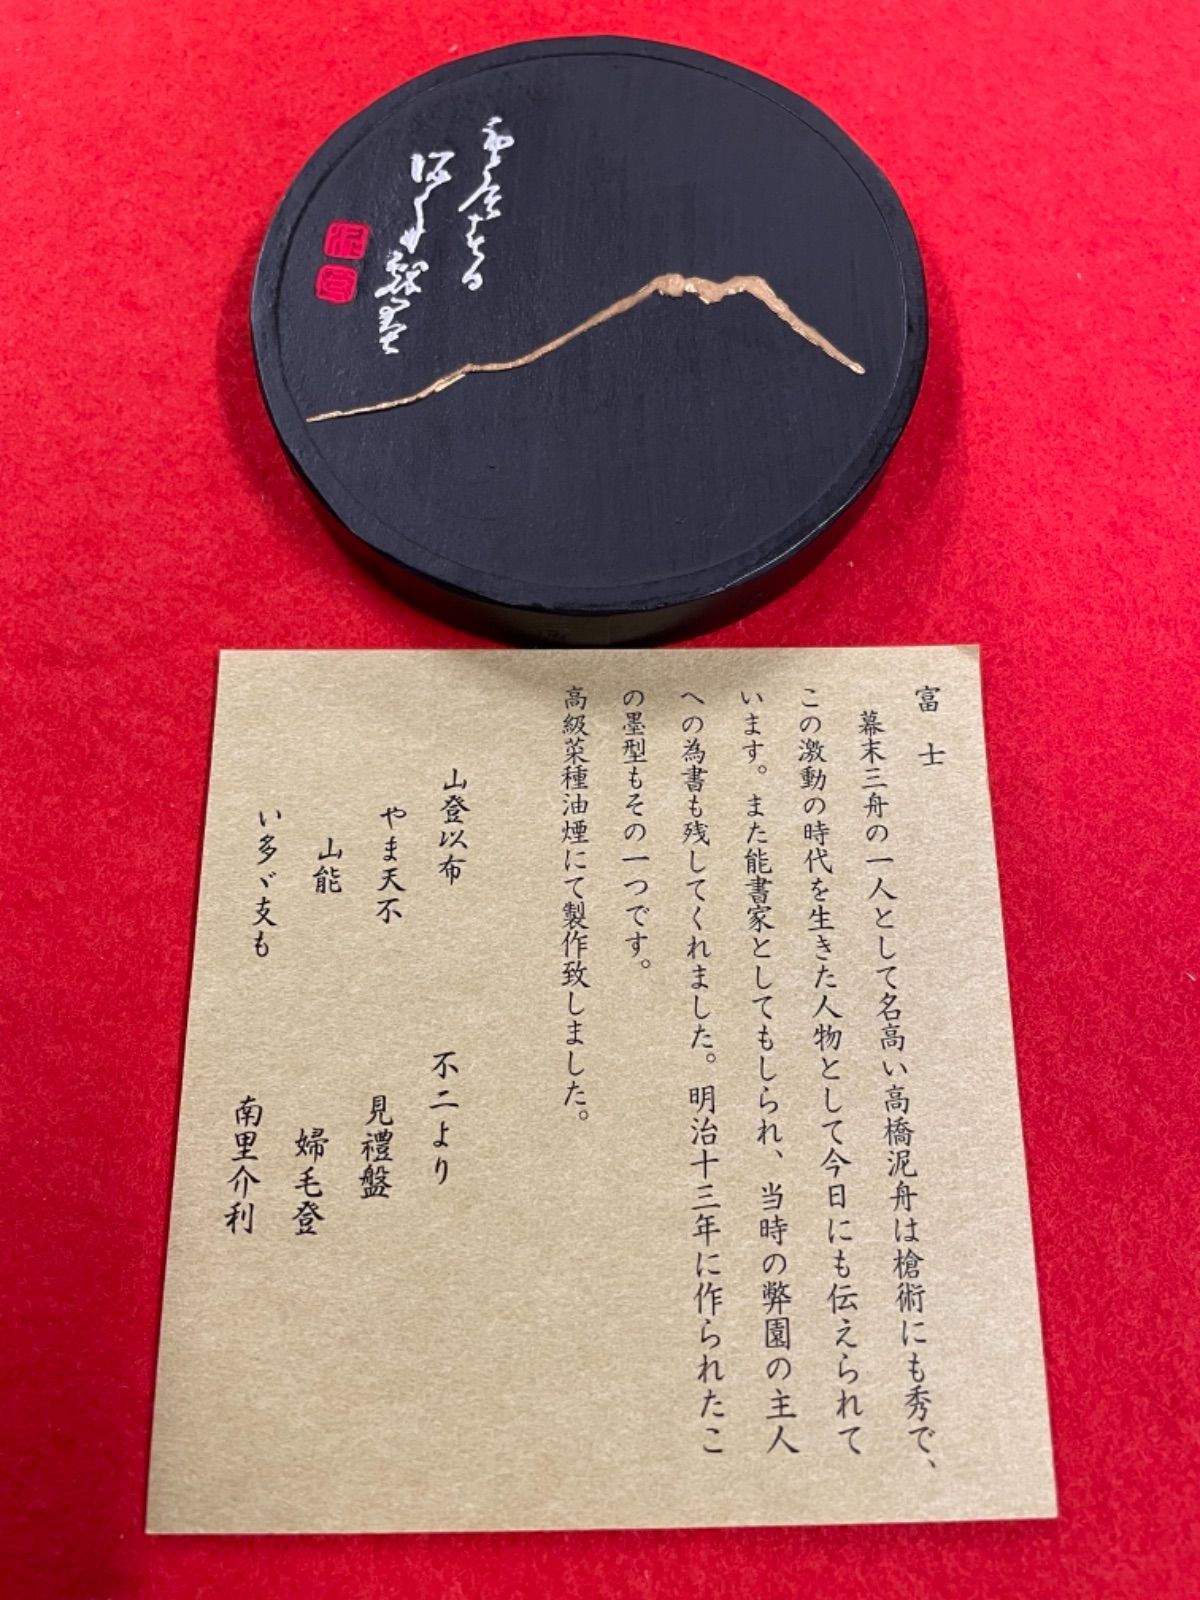 富士
幕末三舟の一人として名高い高橋泥舟は槍術にも秀で、
この激動の時代を生きた人物として今日にも伝えられて
います。また能書家としてもしられ、当時の弊園の主人
への為書も残してくれました。明治十三年に作られたこ
の墨型もその一つです。
高級菜種油煙にて製作致しました。
山登以布 不二より
やま天不 見禮盤
山能 婦毛登
い多ヾ支も 南里介利